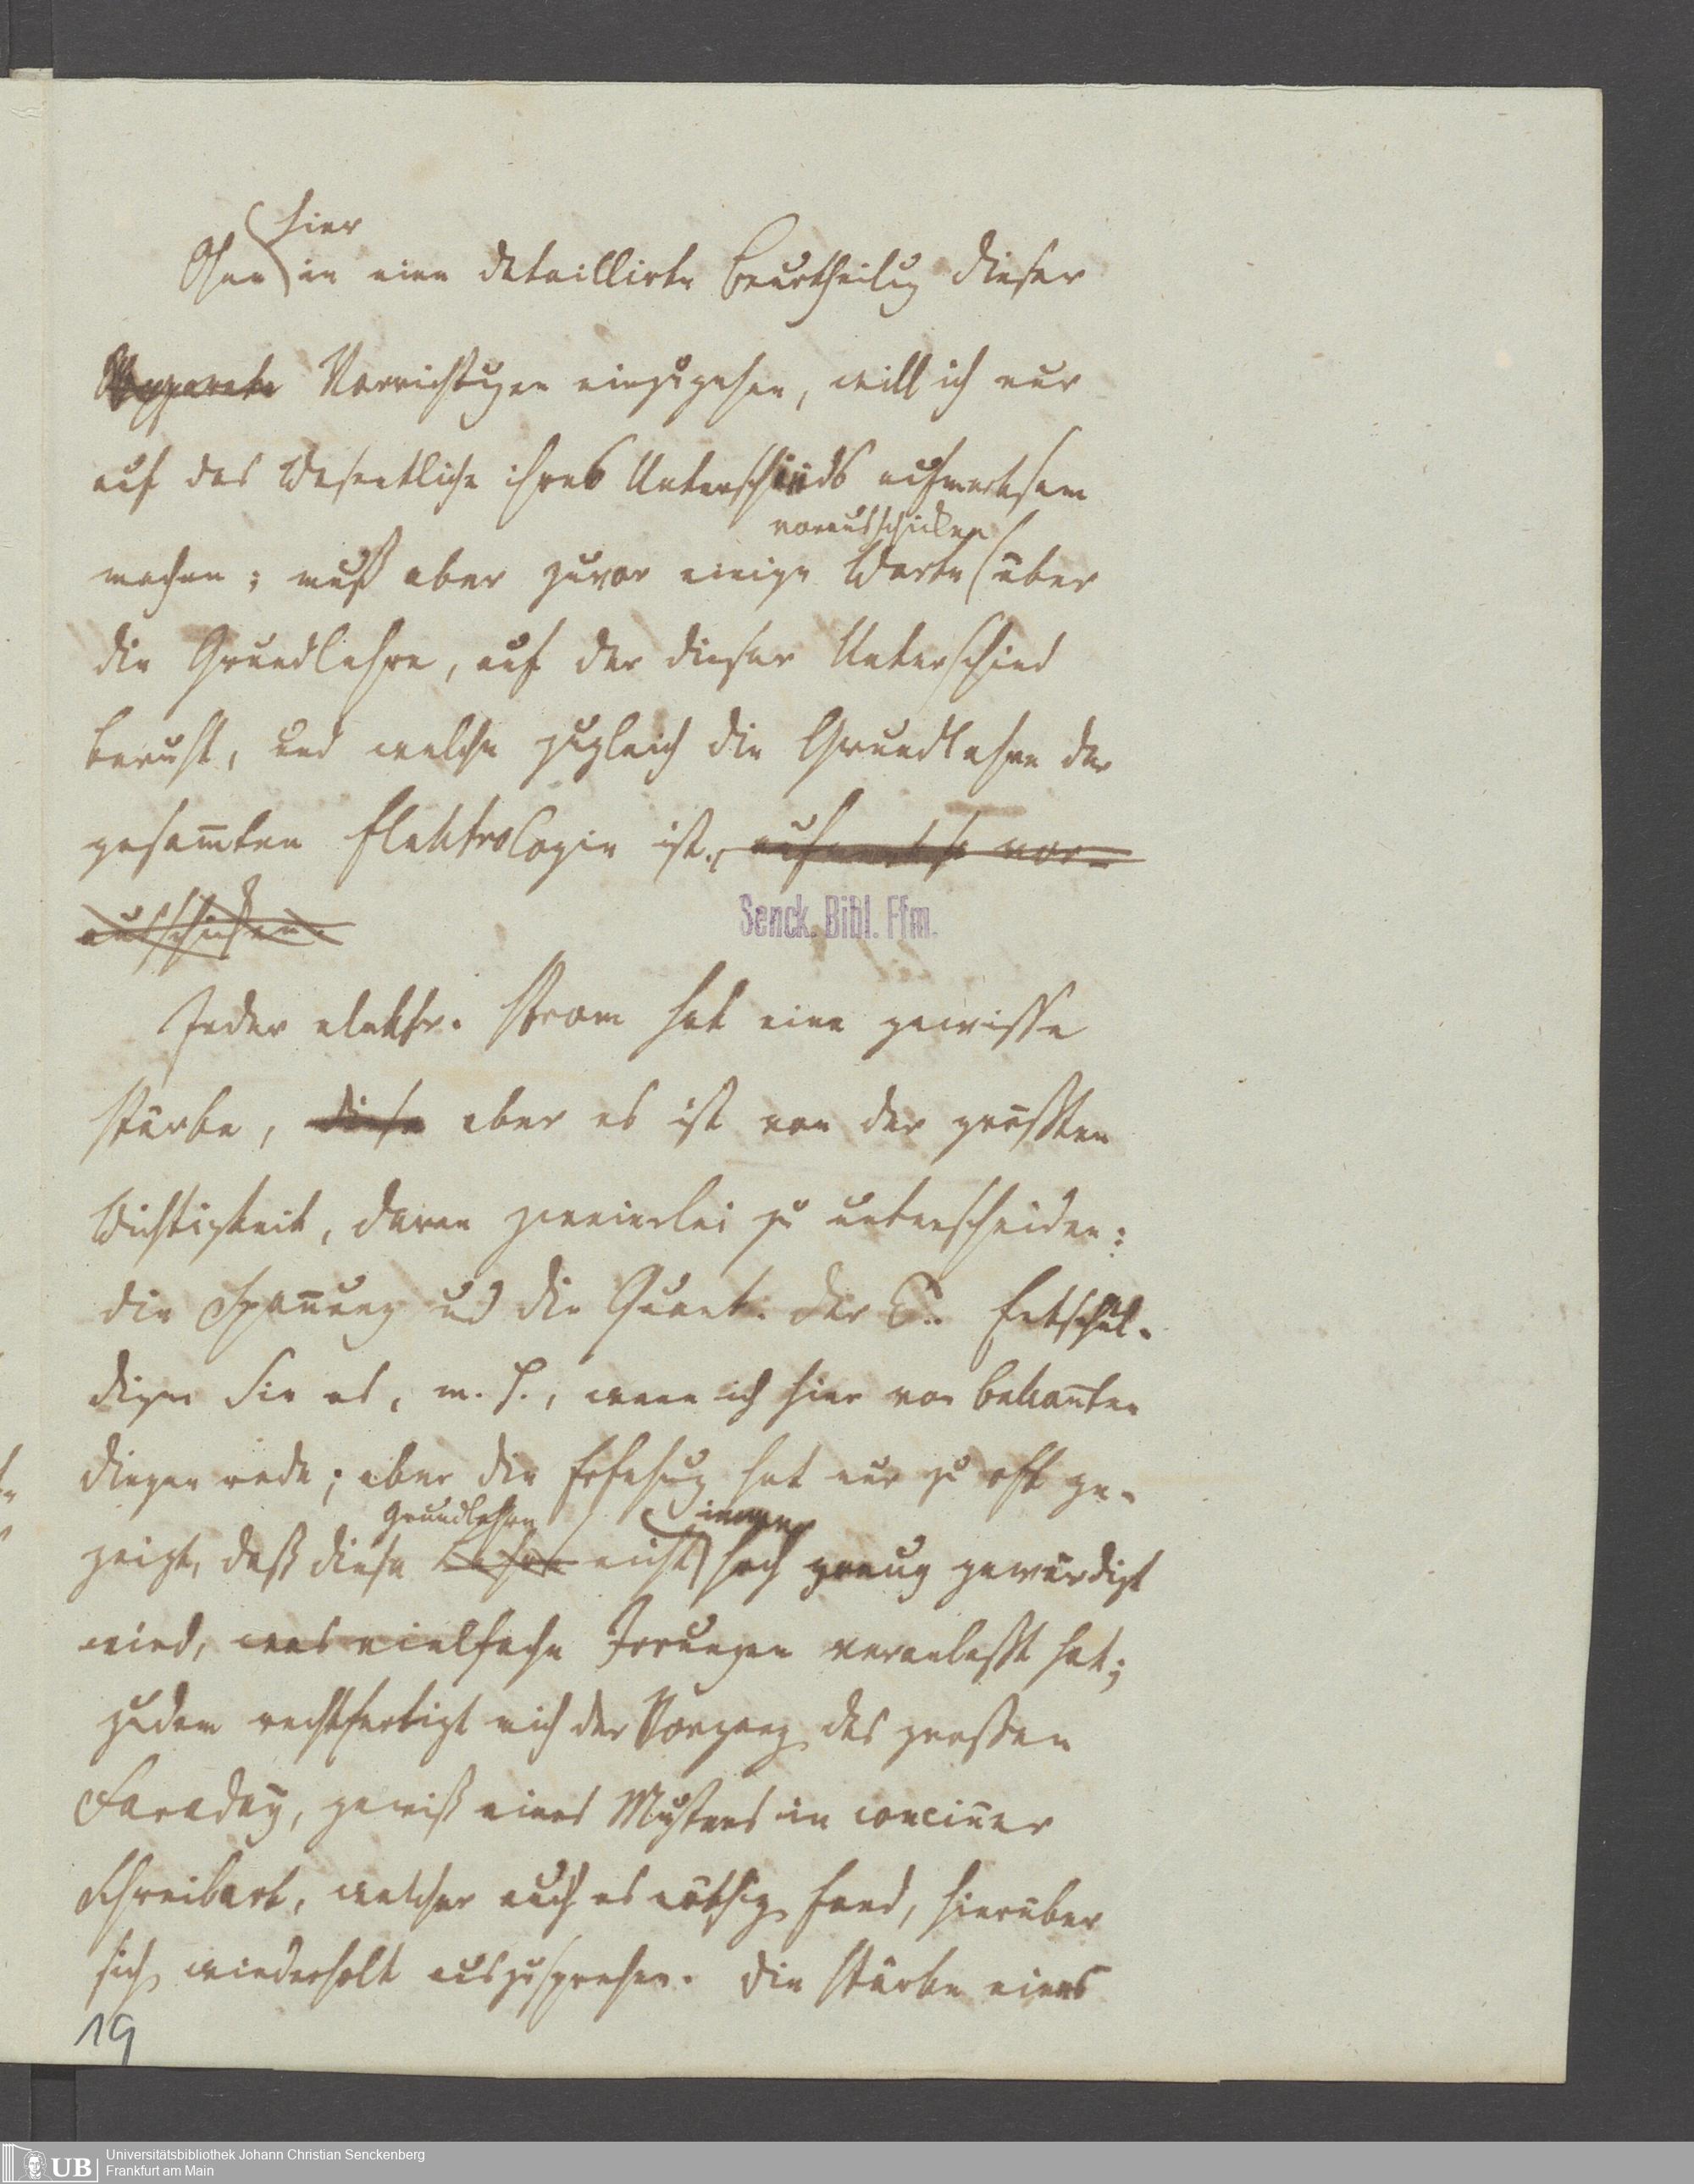 hier
Ohne in eine detaillirte Beurtheilug dieser
Apparate Vorrichtugen einzugehen, will ich nur
auf das Wesentliche ihres Unterschieds aufmerksam
vorausschicken
machen; muß aber zuvor einige Worte über
die Grundlehre, auf der dieser Unterschied
beruht, und welche zugleich die Grundlehre der
gesam̄ten Elektrologie ist, aufmerks vor-
ausschicken.
Senck. Bibl. Ffm.
Jeder elektr. Strom hat eine gewisse
Stärke, diese aber es ist von der größten
Wichtigkeit, daran zweierlei zu unterscheiden:
die Span̄ung und die Quant. der E. Entschul-
digen Sie es, m. H., wenn ich hier von bekan̄ten
Dingen rede; aber die Erfahrug hat nur zu oft ge-
Grundlehre immer
zeigt, daß diese Lehre nicht hoch genug gewürdigt
wird, was vielfache Irrungen veranlaßt hat;
zudem rechtfertigt mich der Vorgang des großen
Faraday, gewiß eines Musters in concin̄er
Schreibart, welcher auch es nöthig fand, hierüber
sich wiederholt auszusprechen. Die Stärke eines
19
UB
Universitätsbibliothek Johann Christian Senckenberg
Frankfurt am Main